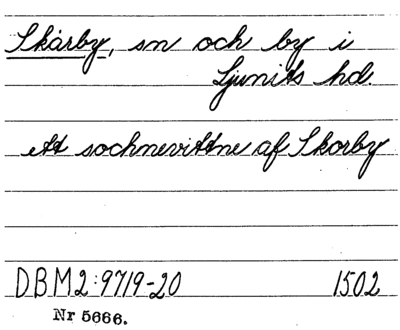 Skårby, sn och by i
Ljunits hd.
ett sochnevittne af Skorby
DBM2:9719-20 1502
Nr 5666.